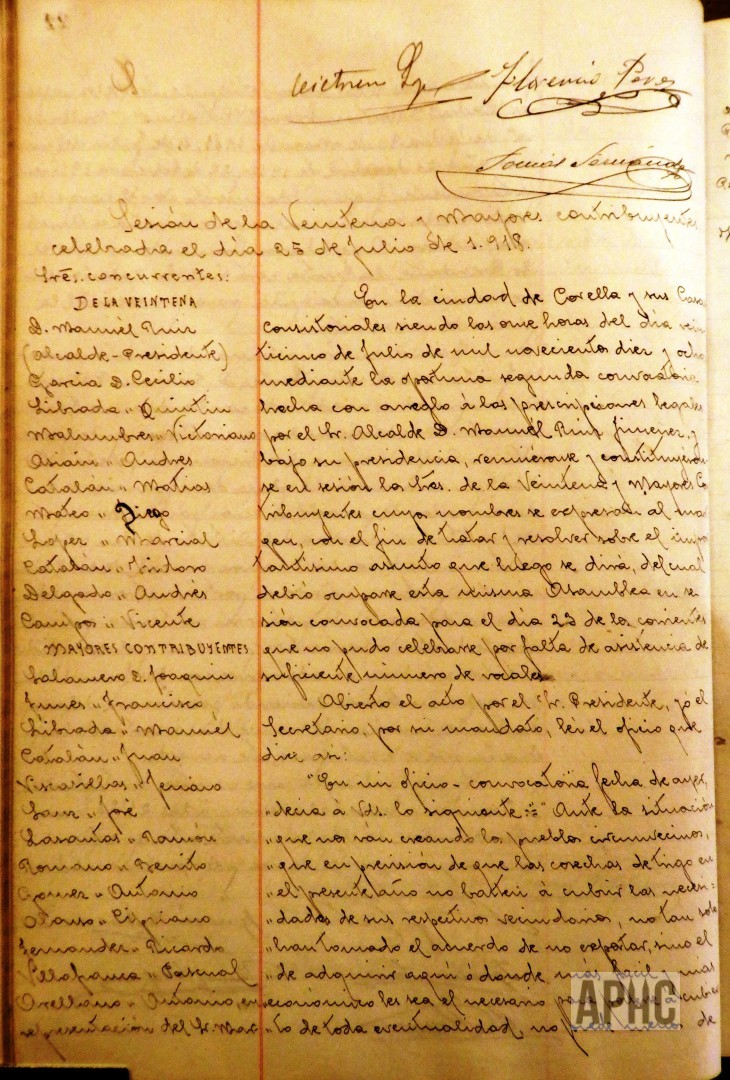 Florencio
Tomás Fernández
Sesión de la Veintena y Mayores contribuyentes
celebrada el día 25 de Julio de 1.918.
Sres. concurrentes:
DE LA VEINTENA
D. Manuel Ruiz
(Alcalde-Presidente)
Garcia D. Cecilio
Librada " Quintin
Malumbres " Victoriano
Asiáin " Andres
Catalán " Matias
Mateo " Diego
Lopez " Marcial
Catalán " Isidoro
Delgado " Andrés
Campos " Vicente
MAYORES CONTRIBUYENTES
Salamero D. Joaquin
Funes " Francisco
Librada " Manuel
Catalán " Juan
Virasillas " Jenaro
Sanz " José
Lasantas " Ramón
Romano " Benito
Gomez " Antonio
Alonso " Cipriano
Fernandez " Ricardo
Villafranca " Pascual
Arellano " Antonio, en
representación del Sr. Mar
En la ciudad de Corella y sus Casas
Consistoriales siendo las once horas del día vein
ticinco de Julio de mil novecientos diez y ocho
mediante la oportuna segunda convocatoria
hecha con arreglo á las prescripciones legales
por el Sr. Alcalde D. Manuel Ruiz Jimenez, y
bajo su presidencia, reunieronse y constituyeron
se en sesión los Sres. de la Veintena y Mayores Co
tribuyentes cuyos nombres se expresan al mar
gen, con el fin de tratar y resolver sobre el impor
tantisimo asunto que luego se dirá, del cual
debió ocuparse esta misma Asamblea en se
sión convocada para el día 23 de los corrientes
que no pudo celebrarse por falta de asistencia de
suficiente número de vocales.
Abierto el acto por el Sr. Presidente, yo el
Secretario, por su mandato, leí el oficio que
dice asi:
"En mi oficio-convocatoria fecha de ayer,
"decia á Vds. lo siguiente: "Ante la situación
"que nos ván creando los pueblos circunvecinos,
"que en previsión de que las cosechas de trigo en
"el presente año no basten á cubrir las necesi-
"dades de sus respectivos vecindarios, no tan solo
"han tomado el acuerdo de no exportar, sino el
"de adquirir aquí ó donde más facil y más
"económico les sea el necesario para ponerse á cubier
"to de toda eventualidad, no puedo menos de
APHC